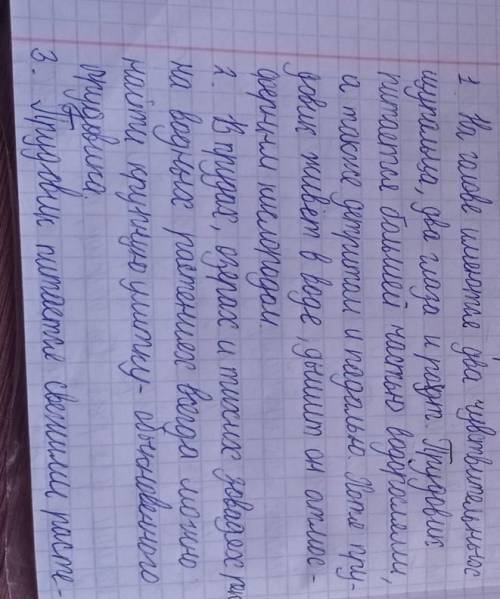 1. На голове имеются два чувствительных
щупальца, два глаза и рот. Прудовик
питается большей частью водорослями,
а также детритом и падалью. Хотя пру-
довик живёт в воде, дышит он атмос-
ферным кислородом.
2. В прудах, озерах и тихих заводях,
на водных растениях всегда можно
найти крупную улитку - обыкновенного
прудовика.
3. Прудовик питается свежими расте-